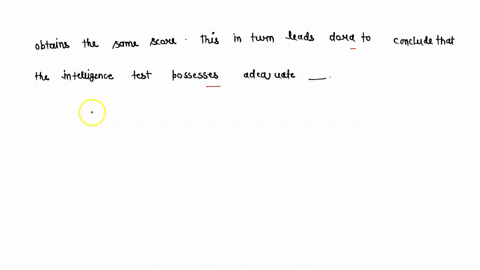 obtains the same score. This in turn leads dora to conclude that
the intelligence test possesses adequate __.